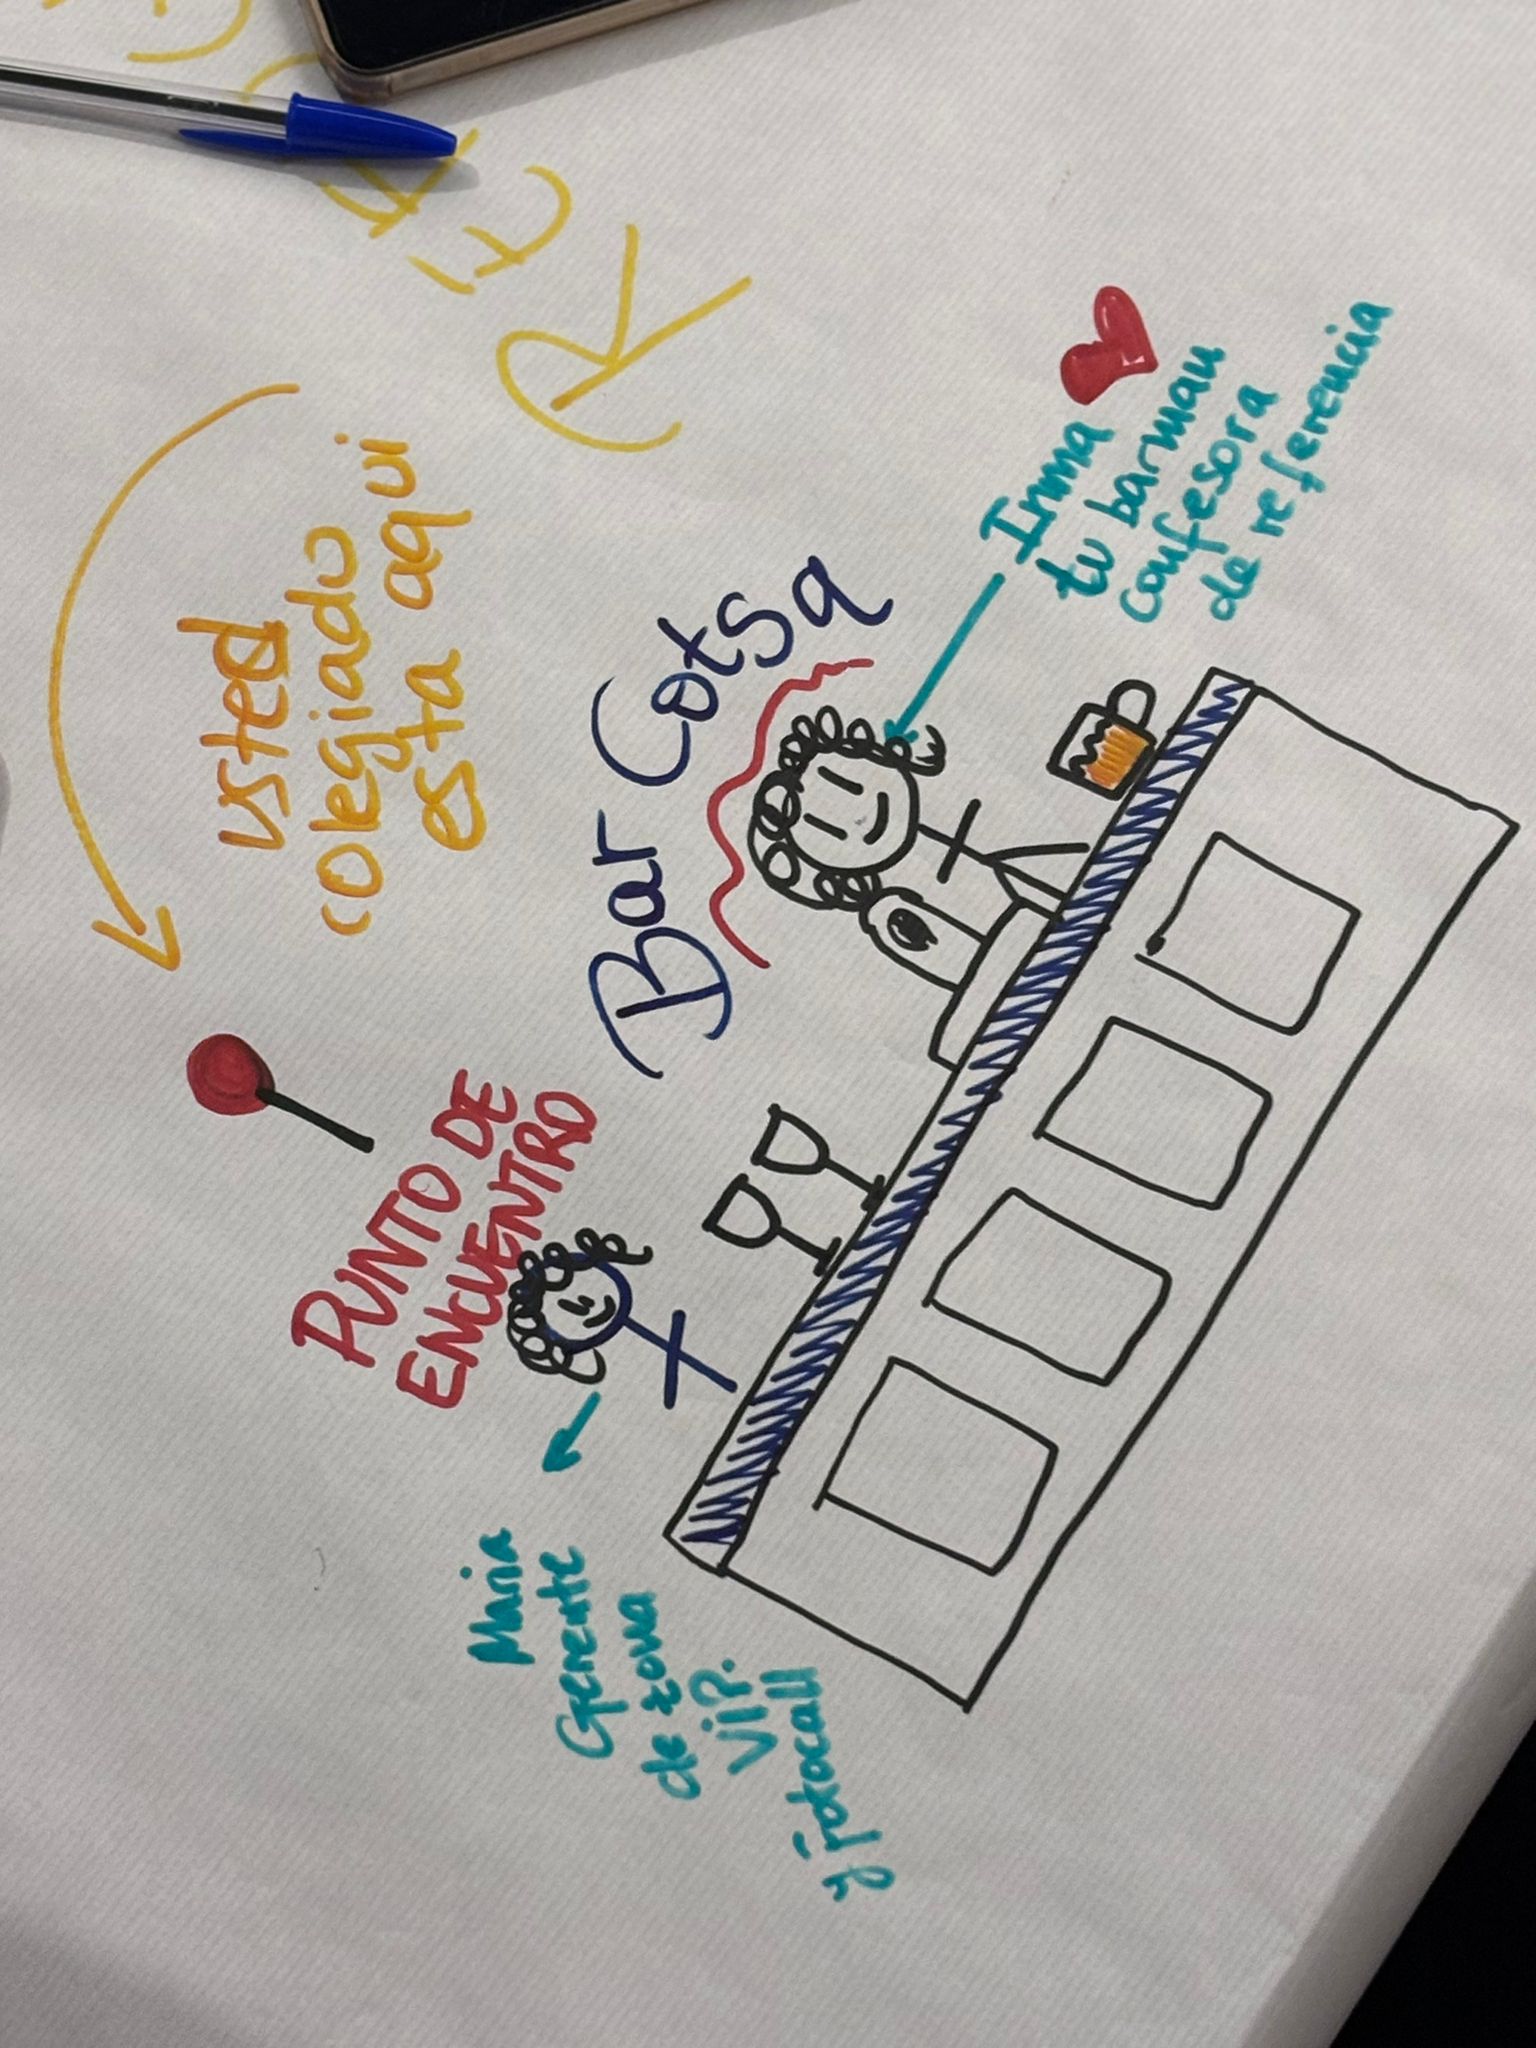 usted
colegiado
esta aqui
PUNTO DE
ENCUENTRO
Bar Cotsa
Inma
tu barman
confesora
de referencia
Maria
Gerente
de zona
VIP.
y Fotocall